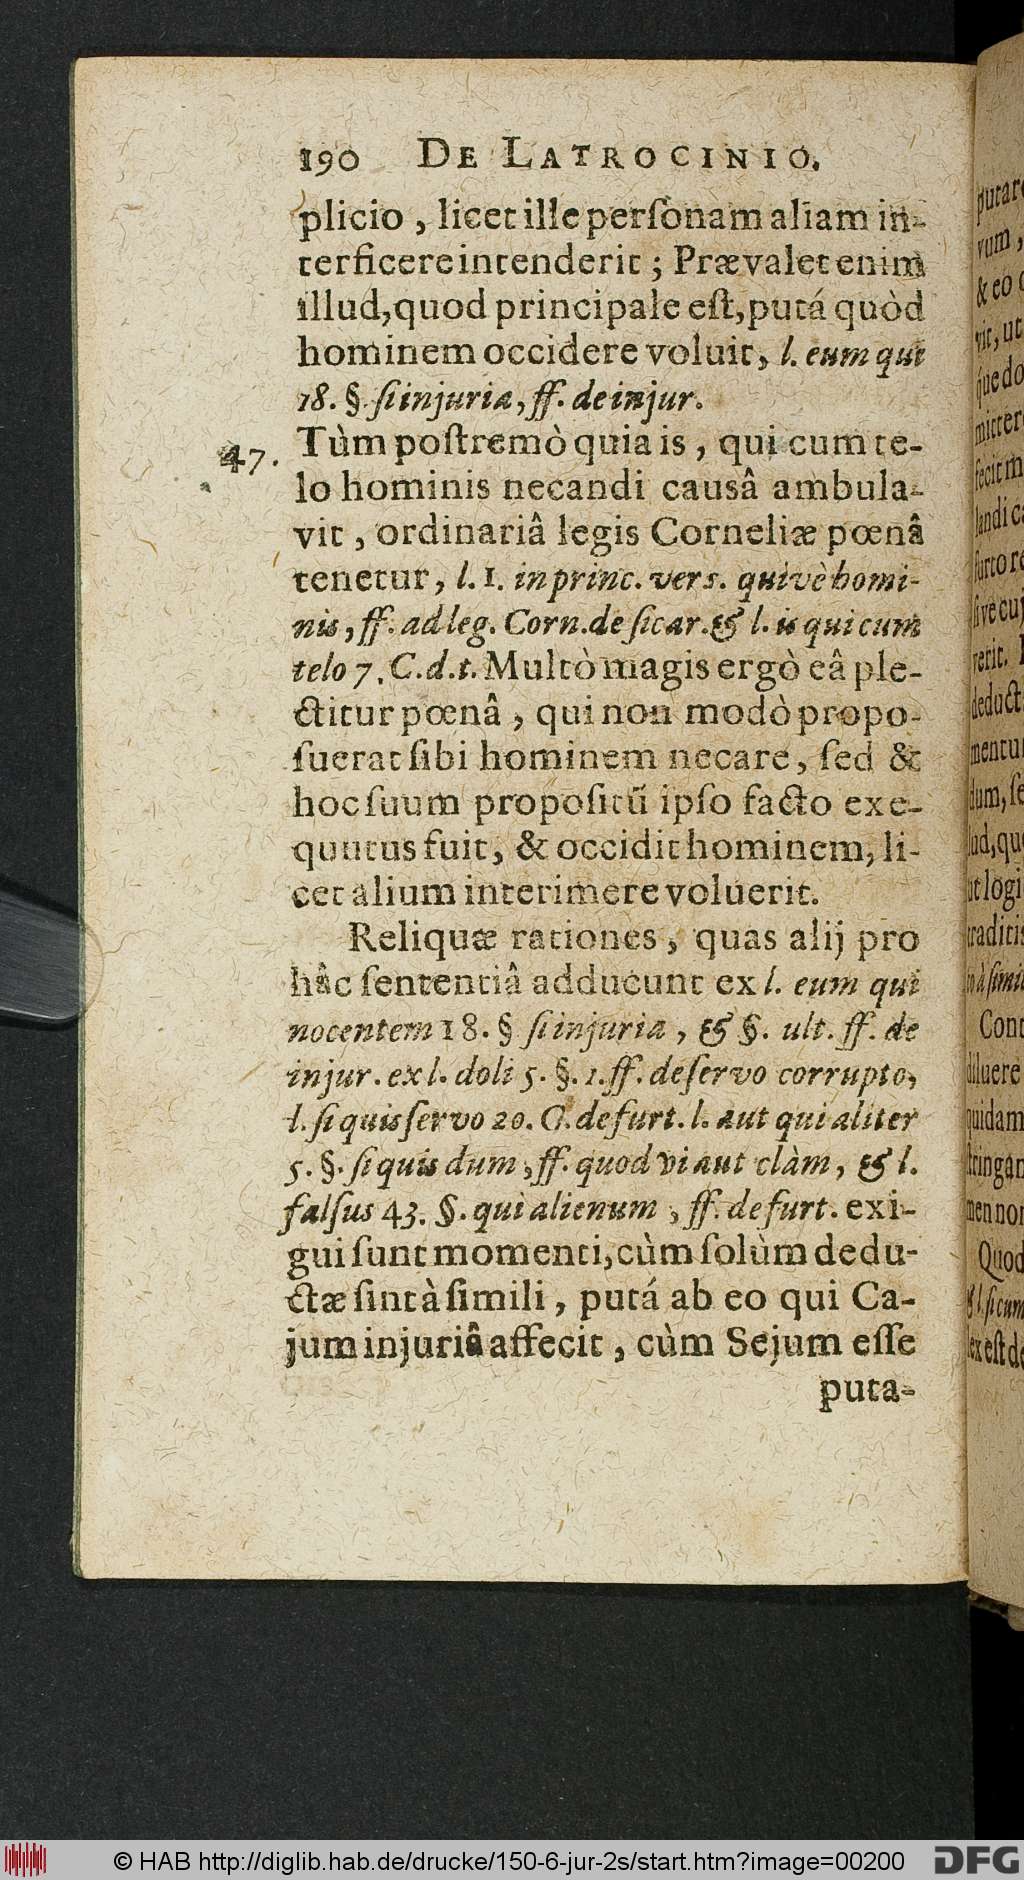 190 DE LATROCINIO.
plicio , licet ille perſonam aliam in-
terficere intenderit ; Prævalet enim
illud, quod principale eſt, putá quòd
hominem occidere voluit, l. eum qui
18. §. ſi injuria, ff. de injur.
47. Tùm poſtremò quia is , qui cum te-
lo hominis necandi causâ ambula-
vit , ordinariâ legis Corneliæ pœnâ
tenetur, l. 1. in princ. vers. quivè homi-
nis, ff. ad leg. Corn. de ſicar. & l. is qui cum
telo 7. C. d. t. Multò magis ergò eâ ple-
ctitur pœnâ , qui non modò propo-
ſuerat ſibi hominem necare, ſed &
hoc ſuum propoſitū ipſo facto exe-
quutus fuit, & occidit hominem, li-
cet alium interimere voluerit.
Reliquæ rationes , quas alij pro
hâc ſententiâ adducunt ex l. eum qui
nocentem 18. § ſi injuria , & §. ult. ff. de
injur. ex l. doli 5. §. 1. ff. de ſervo corrupto,
l. ſi quis ſervo 20. C. de furt. l. aut qui aliter
5. §. ſi quis dum, ff. quod vi aut clàm, & l.
falſus 43. §. qui alienum , ff. de furt. exi-
gui ſunt momenti, cùm ſolùm dedu-
ctæ ſint à ſimili , putá ab eo qui Ca-
jum injuriâ affecit , cùm Sejum eſſe
puta-
vum,
& eo
vit, ut
lud, qu
ut logi
Cont
diluere
quidam
men non
Quod
© HAB http://diglib.hab.de/drucke/150-6-jur-2s/start.htm?image=00200
DFG